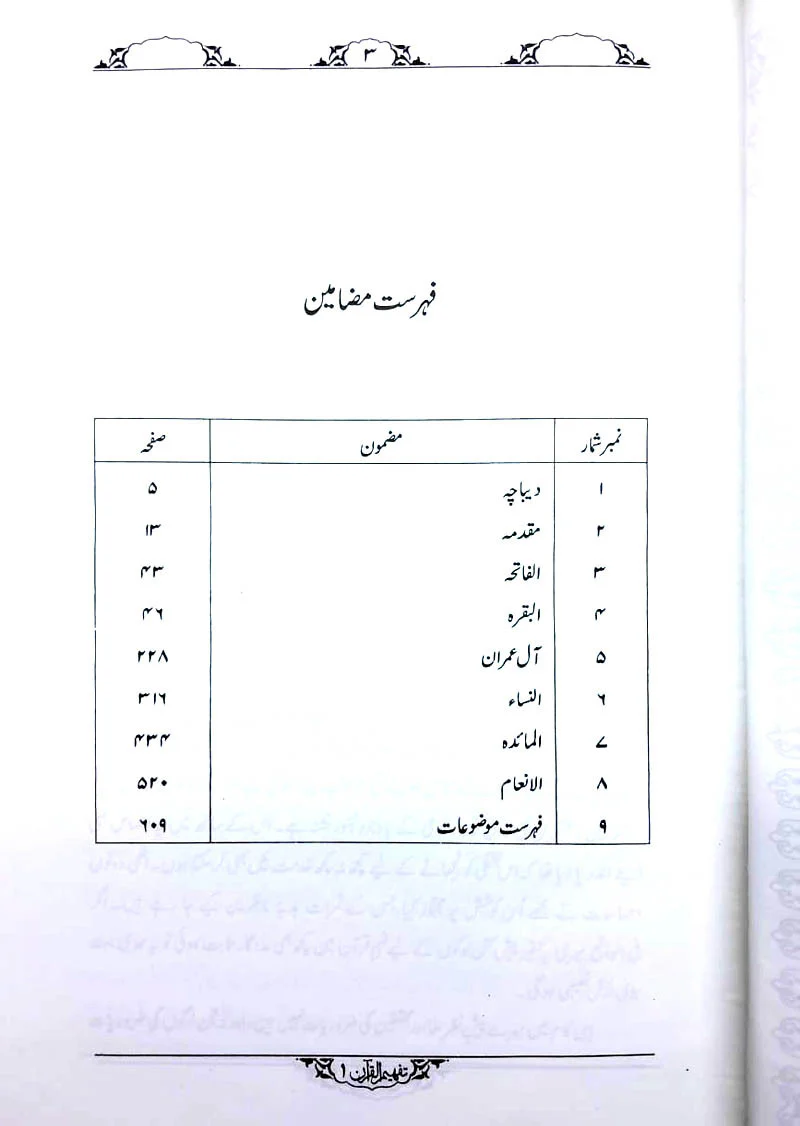 ۳
فہرست مضامین
نمبر شمار مضمون صفحہ
۱ دیباچہ ۵
۲ مقدمہ ۱۳
۳ الفاتحہ ۴۳
۴ البقرہ ۴۶
۵ آل عمران ۲۲۸
۶ النساء ۳۱۶
۷ المائدہ ۴۳۴
۸ الانعام ۵۲۰
۹ فہرست موضوعات ۶۰۹
تفہیم القرآن ۱